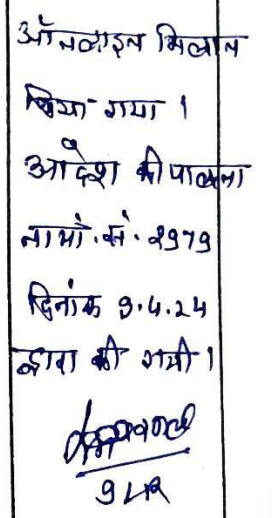 ऑनलाइन मिलान
किया गया।
आदेश की पालना
नामां.सं. 2979
दिनांक 9.4.24
द्वारा की गयी।